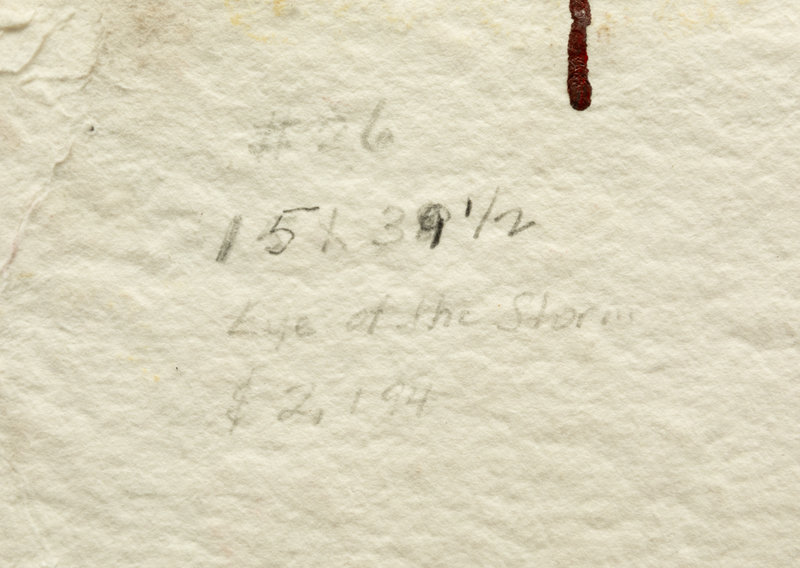 # 26
15 x 39 1/2
Eye of the Storm
$ 2,194